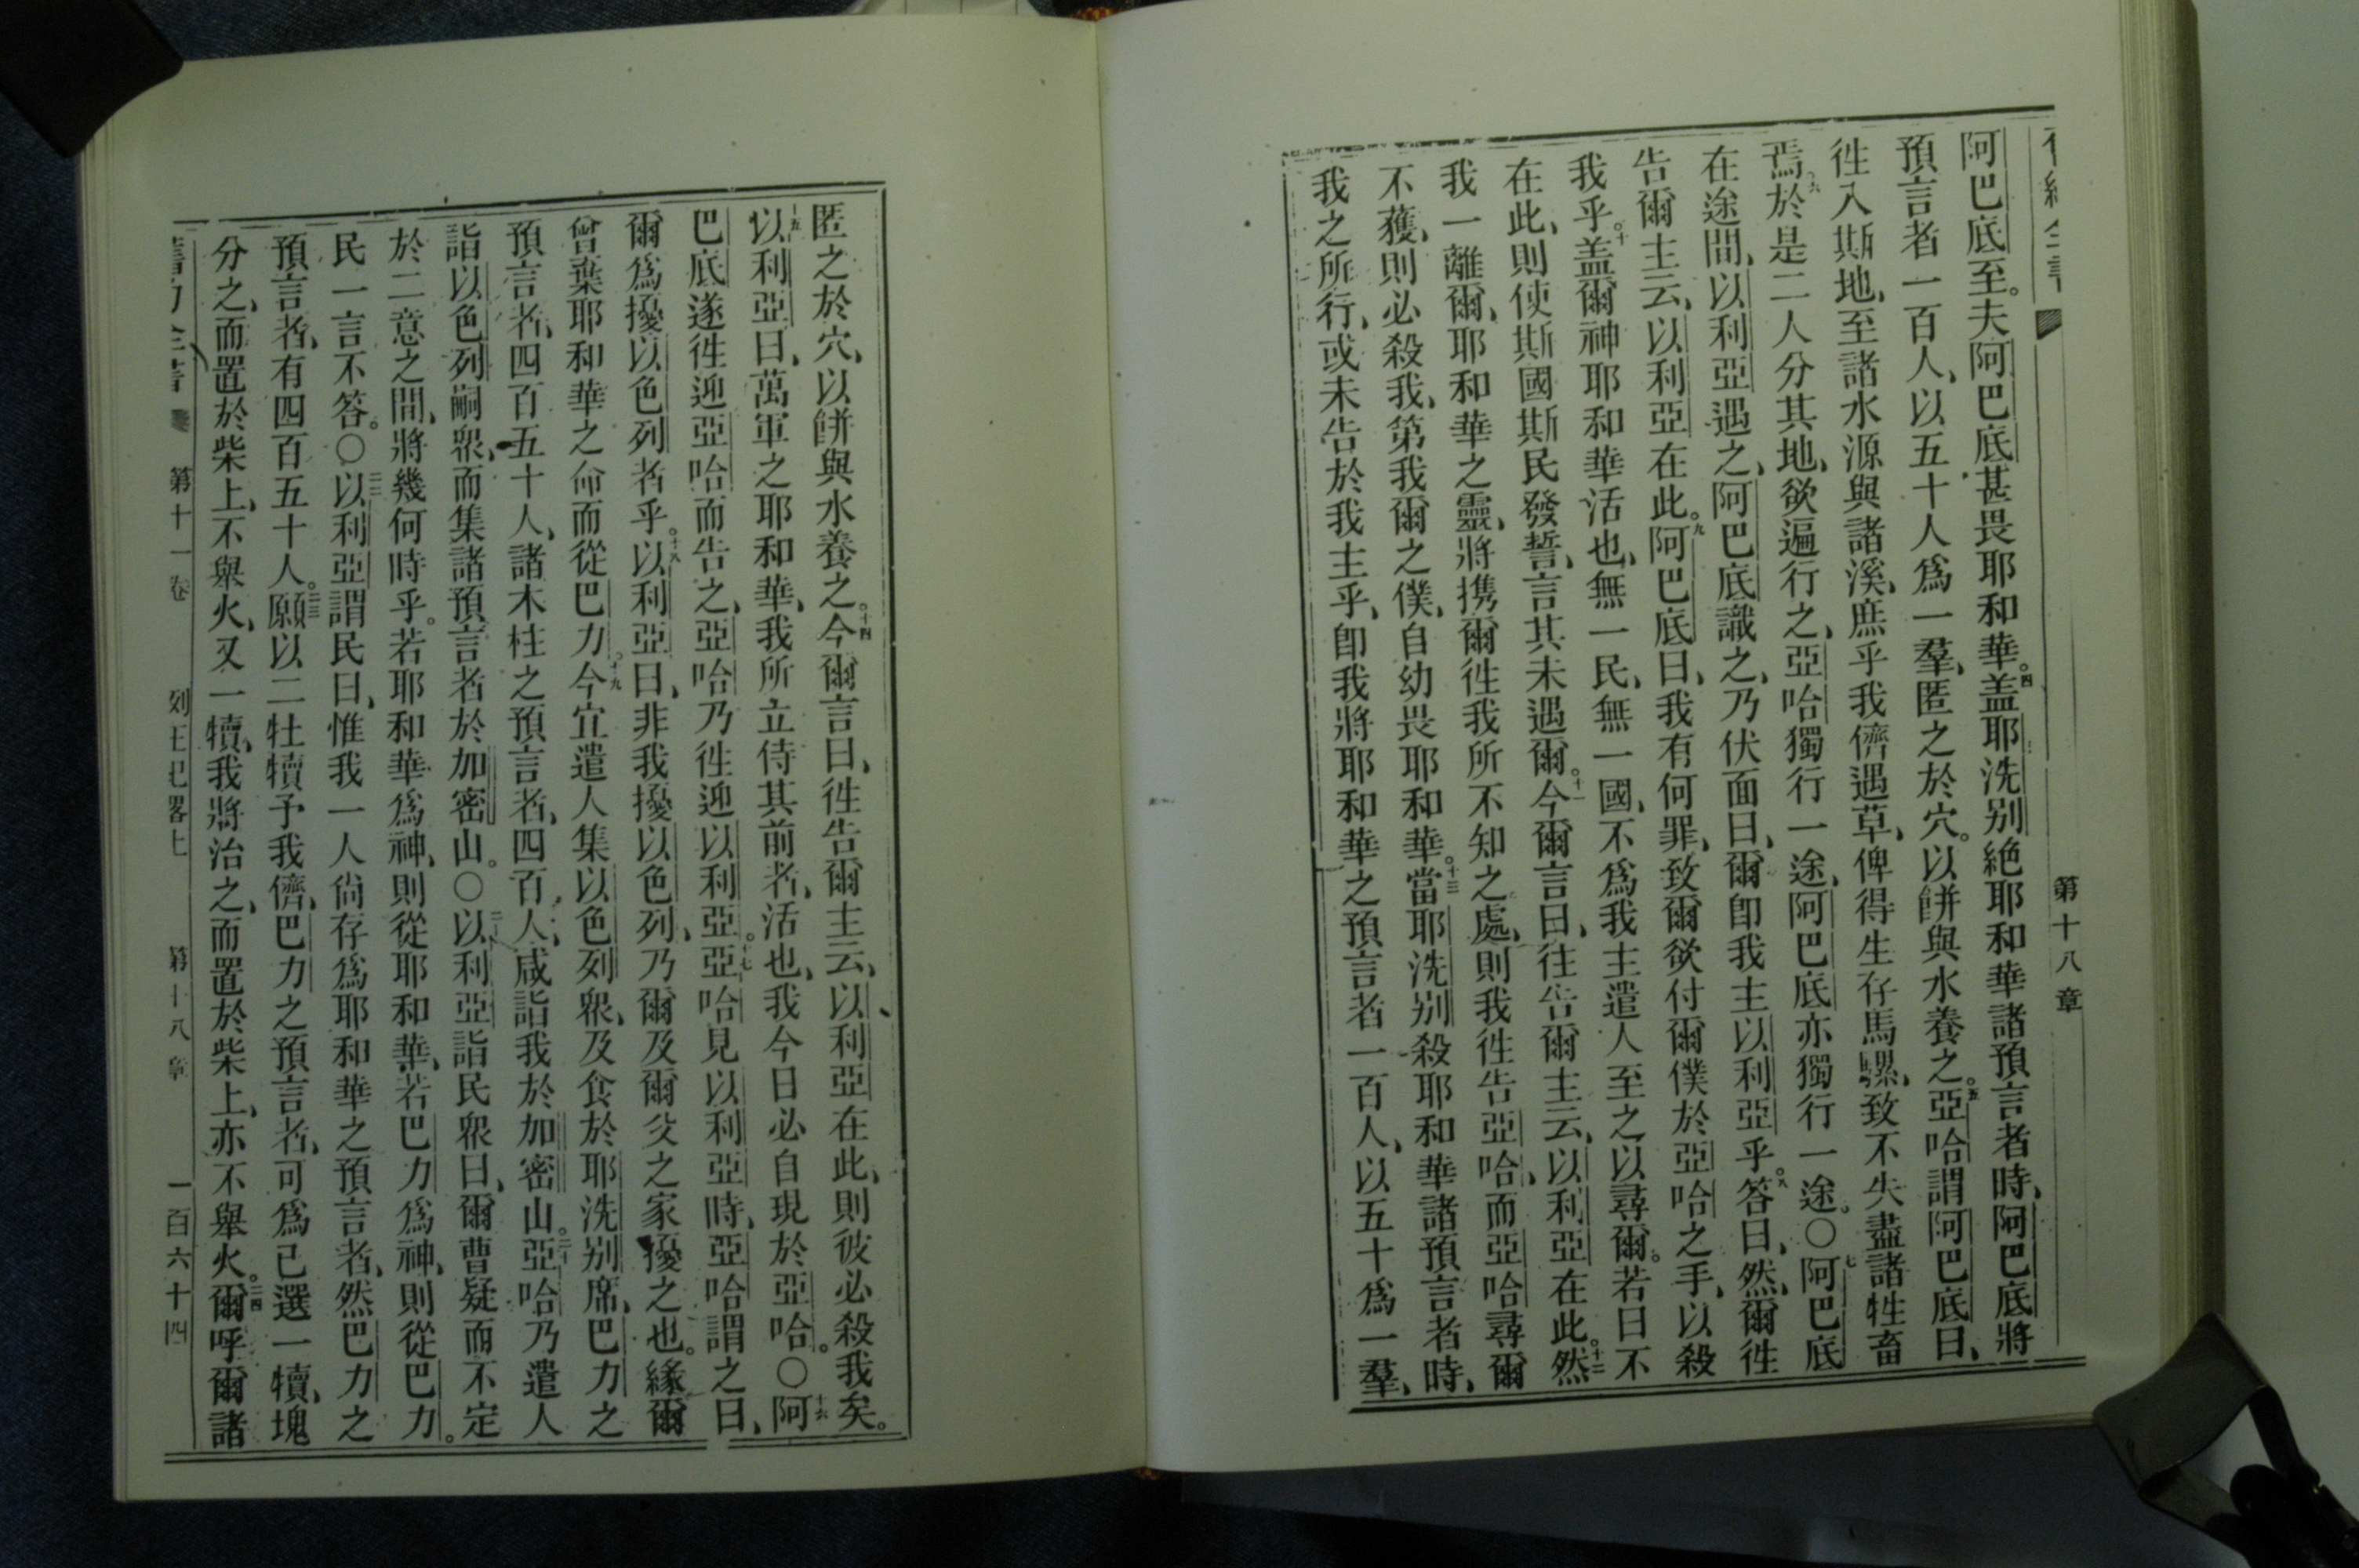 第十八章
阿巴底至。夫阿巴底甚畏耶和華。四盖耶洗别絕耶和華諸預言者時、阿巴底將
預言者一百人、以五十人爲一羣、匿之於穴。以餅與水養之。五亞哈謂阿巴底曰、
徃入斯地、至諸水源與諸溪、庶乎我儕遇草、俾得生存馬騾、致不失盡諸牲畜
焉。六於是二人分其地、欲遍行之、亞哈獨行一途、阿巴底亦獨行一途。〇七阿巴底
在途間、以利亞遇之、阿巴底識之、乃伏面曰、爾卽我主以利亞乎。八答曰、然、爾徃
告爾主云、以利亞在此。九阿巴底曰、我有何罪、致爾欲付爾僕於亞哈之手、以殺
我乎。十盖爾神耶和華活也、無一民、無一國、不爲我主遣人至之以尋爾。若曰不
在此、則使斯國斯民發誓、言其未遇爾。十一今爾言曰、往告爾主云、以利亞在此。十二然
我一離爾、耶和華之靈、將携爾徃我所不知之處、則我徃告亞哈、而亞哈尋爾
不獲、則必殺我、第我爾之僕、自幼畏耶和華。十三當耶洗别殺耶和華諸預言者時、
我之所行、或未告於我主乎、卽我將耶和華之預言者一百人、以五十爲一羣、
匿之於穴、以餅與水養之。十四今爾言曰、徃告爾主云、以利亞在此、則彼必殺我矣。
十五以利亞曰、萬軍之耶和華、我所立侍其前者、活也、我今日必自現於亞哈。〇十六阿
巴底遂徃迎亞哈而告之、亞哈乃徃迎以利亞。十七亞哈見以利亞時、亞哈謂之曰、
爾爲擾以色列者乎。十八以利亞曰、非我擾以色列、乃爾及爾父之家擾之也。緣爾
曾棄耶和華之命而從巴力。十九今宜遣人集以色列衆、及食於耶洗别席、巴力之
預言者、四百五十人、諸木柱之預言者、四百人、咸詣我於加密山。二十亞哈乃遣人
詣以色列嗣衆、而集諸預言者於加密山。〇以利亞詣民衆曰、爾曹疑而不定
於二意之間、將幾何時乎。若耶和華爲神、則從耶和華、若巴力爲神、則從巴力。
民一言不答。〇二二以利亞謂民曰、惟我一人尙存爲耶和華之預言者、然巴力之
預言者、有四百五十人。二三願以二牡犢予我儕、巴力之預言者、可爲已選一犢、塊
分之、而置於柴上、不舉火、又一犢、我將治之、而置於柴上、亦不舉火。二四爾呼爾諸
第十一卷 列王紀畧上 第十八章 一百六十四